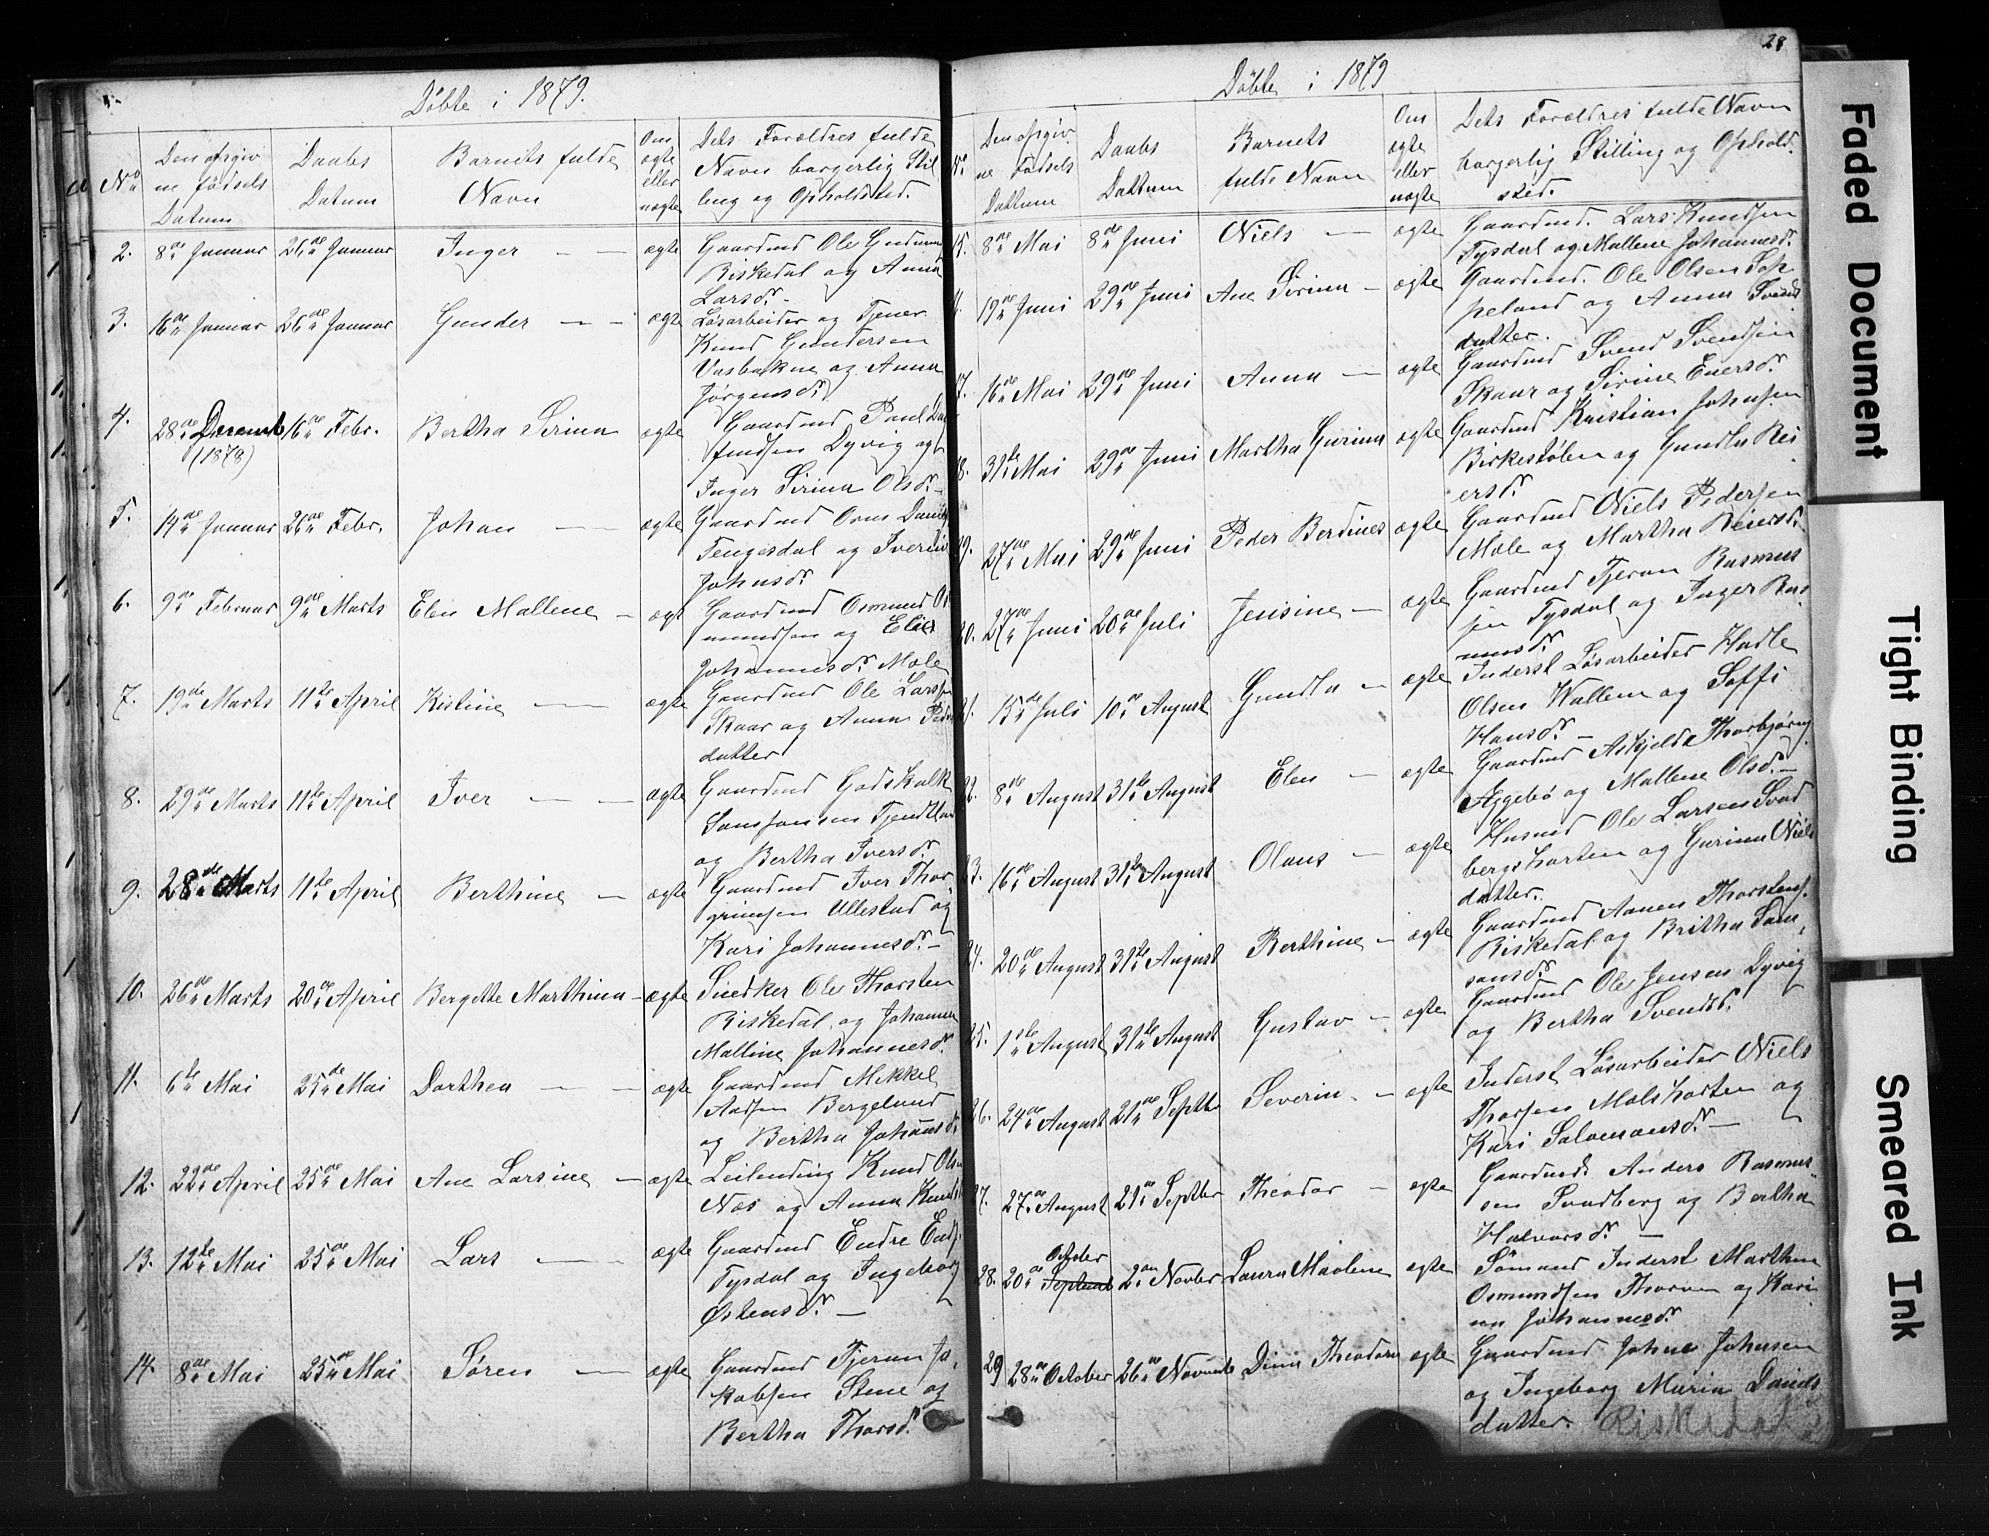 Döbte i 1879.
No
Den opgiv
ne födsels
Datum
Daabs
Datum
Barnets fulde
Navn
Om
ægte
eller
uægte
Dets Forældres fulde
Navn borgerlig Stil
ling og Opholdsted.
2. 8de Januar 26de Januar Inger — — ægte Gaardmd Ole Gudmun
Riskedal og Anna
Larsdr. —
3. 16de Januar 26de Januar Gunder — — ægte Løsarbeider og Tjener
Knud Gundersen
og Anna
Jørgensdr.
4. 28de Decemb 16de Febr. Bertha Sirina ægte Gaardmd Paul
(1878)
Dyvig og
Inger Sirina Olsdr. —
5. 14de Januar 26de Febr. Johan — — ægte Gaardmd Orm Daniels
Tengesdal og
Johnsdr.
6. 9de Februar 9de Marts Elen Mallene — ægt Gaardmd Osmund Os
mundsen og Elen
Johannesdr. Mæle
7. 19de Marts 11te April Kistine — ægte Gaardmd Ole Larsen
Skaar og Anna Peders
datter
8. 29de Marts 11te April Iver — — ægte Gaardmd Godskalk
Samsonsen Tjendtland
og Bertha Iversdr.
9. 28de Marts 11te April Berthine — ægte Gaardmd Iver Thor
grimsen Ullestad og
Kari Johannesdr. —
10. 26de Marts 20de April Bergette Marthina — ægte Snedker Ole Thorsten
Riskedal, og Johanna
Malline Johannesdr.
11. 6te Mai 25de Mai Dorthea — — ægte Gaardmd Mikkel
Aadsen Bergeland
og Bertha Johansdr.
12. 22de April 25de Mai Ane Larsine — ægte Leilending Knud Olsen
Næs og Anna Knuds
13. 12te Mai 25de Mai Lars — ægte Gaardmd Endre Ends.
Tysdal og Ingeborg
Østensdr. —
14. 8de Mai 25de Mai Søren — ægte Gaardmd Tjeran Ja
kobsen Stene og
Bertha Thorsdr.
28
Döbte i 1879
No.
Den opgiv
ne Födsels
Dattum
Daabs
Dattum
Barnets
fulde Navn
Om
ægte
eller
uægte
Dets Forældres fulde Navn
borgerlig Stilling og Ophold.
sted.
15. 8de Mai 8de Juni Niels — ægte Gaardmd. Lars Knudsen
Tysdal og Mallene Johannesdr.
19de Juni 29de Juni Ane Sirina — ægte Gaardmd. Ole Olsen Sop
peland og Anna Svends
datter.
17. 16de Mai 29de Juni Anna — ægte Gaardmd Svend Svendsen
Skaar og Sirine Enersdr.
18. 31te Mai 29de Juni Martha Gurina ægte Gaardmd Kristian Johnsen
Birkestølen og Gundla Rei
ersdr.
19. 27de Mai 29de Juni Peder Berdines ægte Gaardmd Niels Pedersen
Mæle og Martha Reiersdr.
20. 27de Juni 20de Juli Jensine — ægte Gaardmd Tjeran Rasmus
sen Tysdal og Inger Ras
musdr.
21. 15de Juli 10de August Gundla — ægte Inderst Løsarbeider Hadle
Olsen Wallem og Soffi
Hansdr. —
22. 8de August 31te August Elen — ægte Gaardmd Askjeld Thorbjørns
Aggebö og Mallene Olsdr. —
23. 16de August 31te August Olaus — ægte Husmd Ole Larsen Svad
bergshorten og Gurina Niels
datter.
24. 20de August 31te August Berthine — ægte Gaardmd Aanen Thorstens.
Riskedal og Britha Sam
sonsdr.
25. 1ste August 31te August Gustav — ægte Gaardmd Ole Jensen Dyvig
og Bertha Svendsdr.
26. 24de August 21de Septbr Severin — ægte Inderst Løsarbeider Niels
Thorsen Malshorten og
Kari Salvemonsdr. —
27. 27de August 21de Septbr Theodor — ægte Gaardmd. Anders Rasmus
sen Svadberg og Bertha
Halvorsdr. —
October
28. 20de Septemb 2den Novbr Laura Maolene ægte Sömand Inderst Marthin
Osmundsen Thorven og Kari
na Johannesdr.
29 28de October 26de Novemb Dina Theodora ægte Gaardmd Johne Johnsen
og Ingeborg Maria Davids
datter. Riskedal
Faded Document
Tight Binding
Smeared Ink